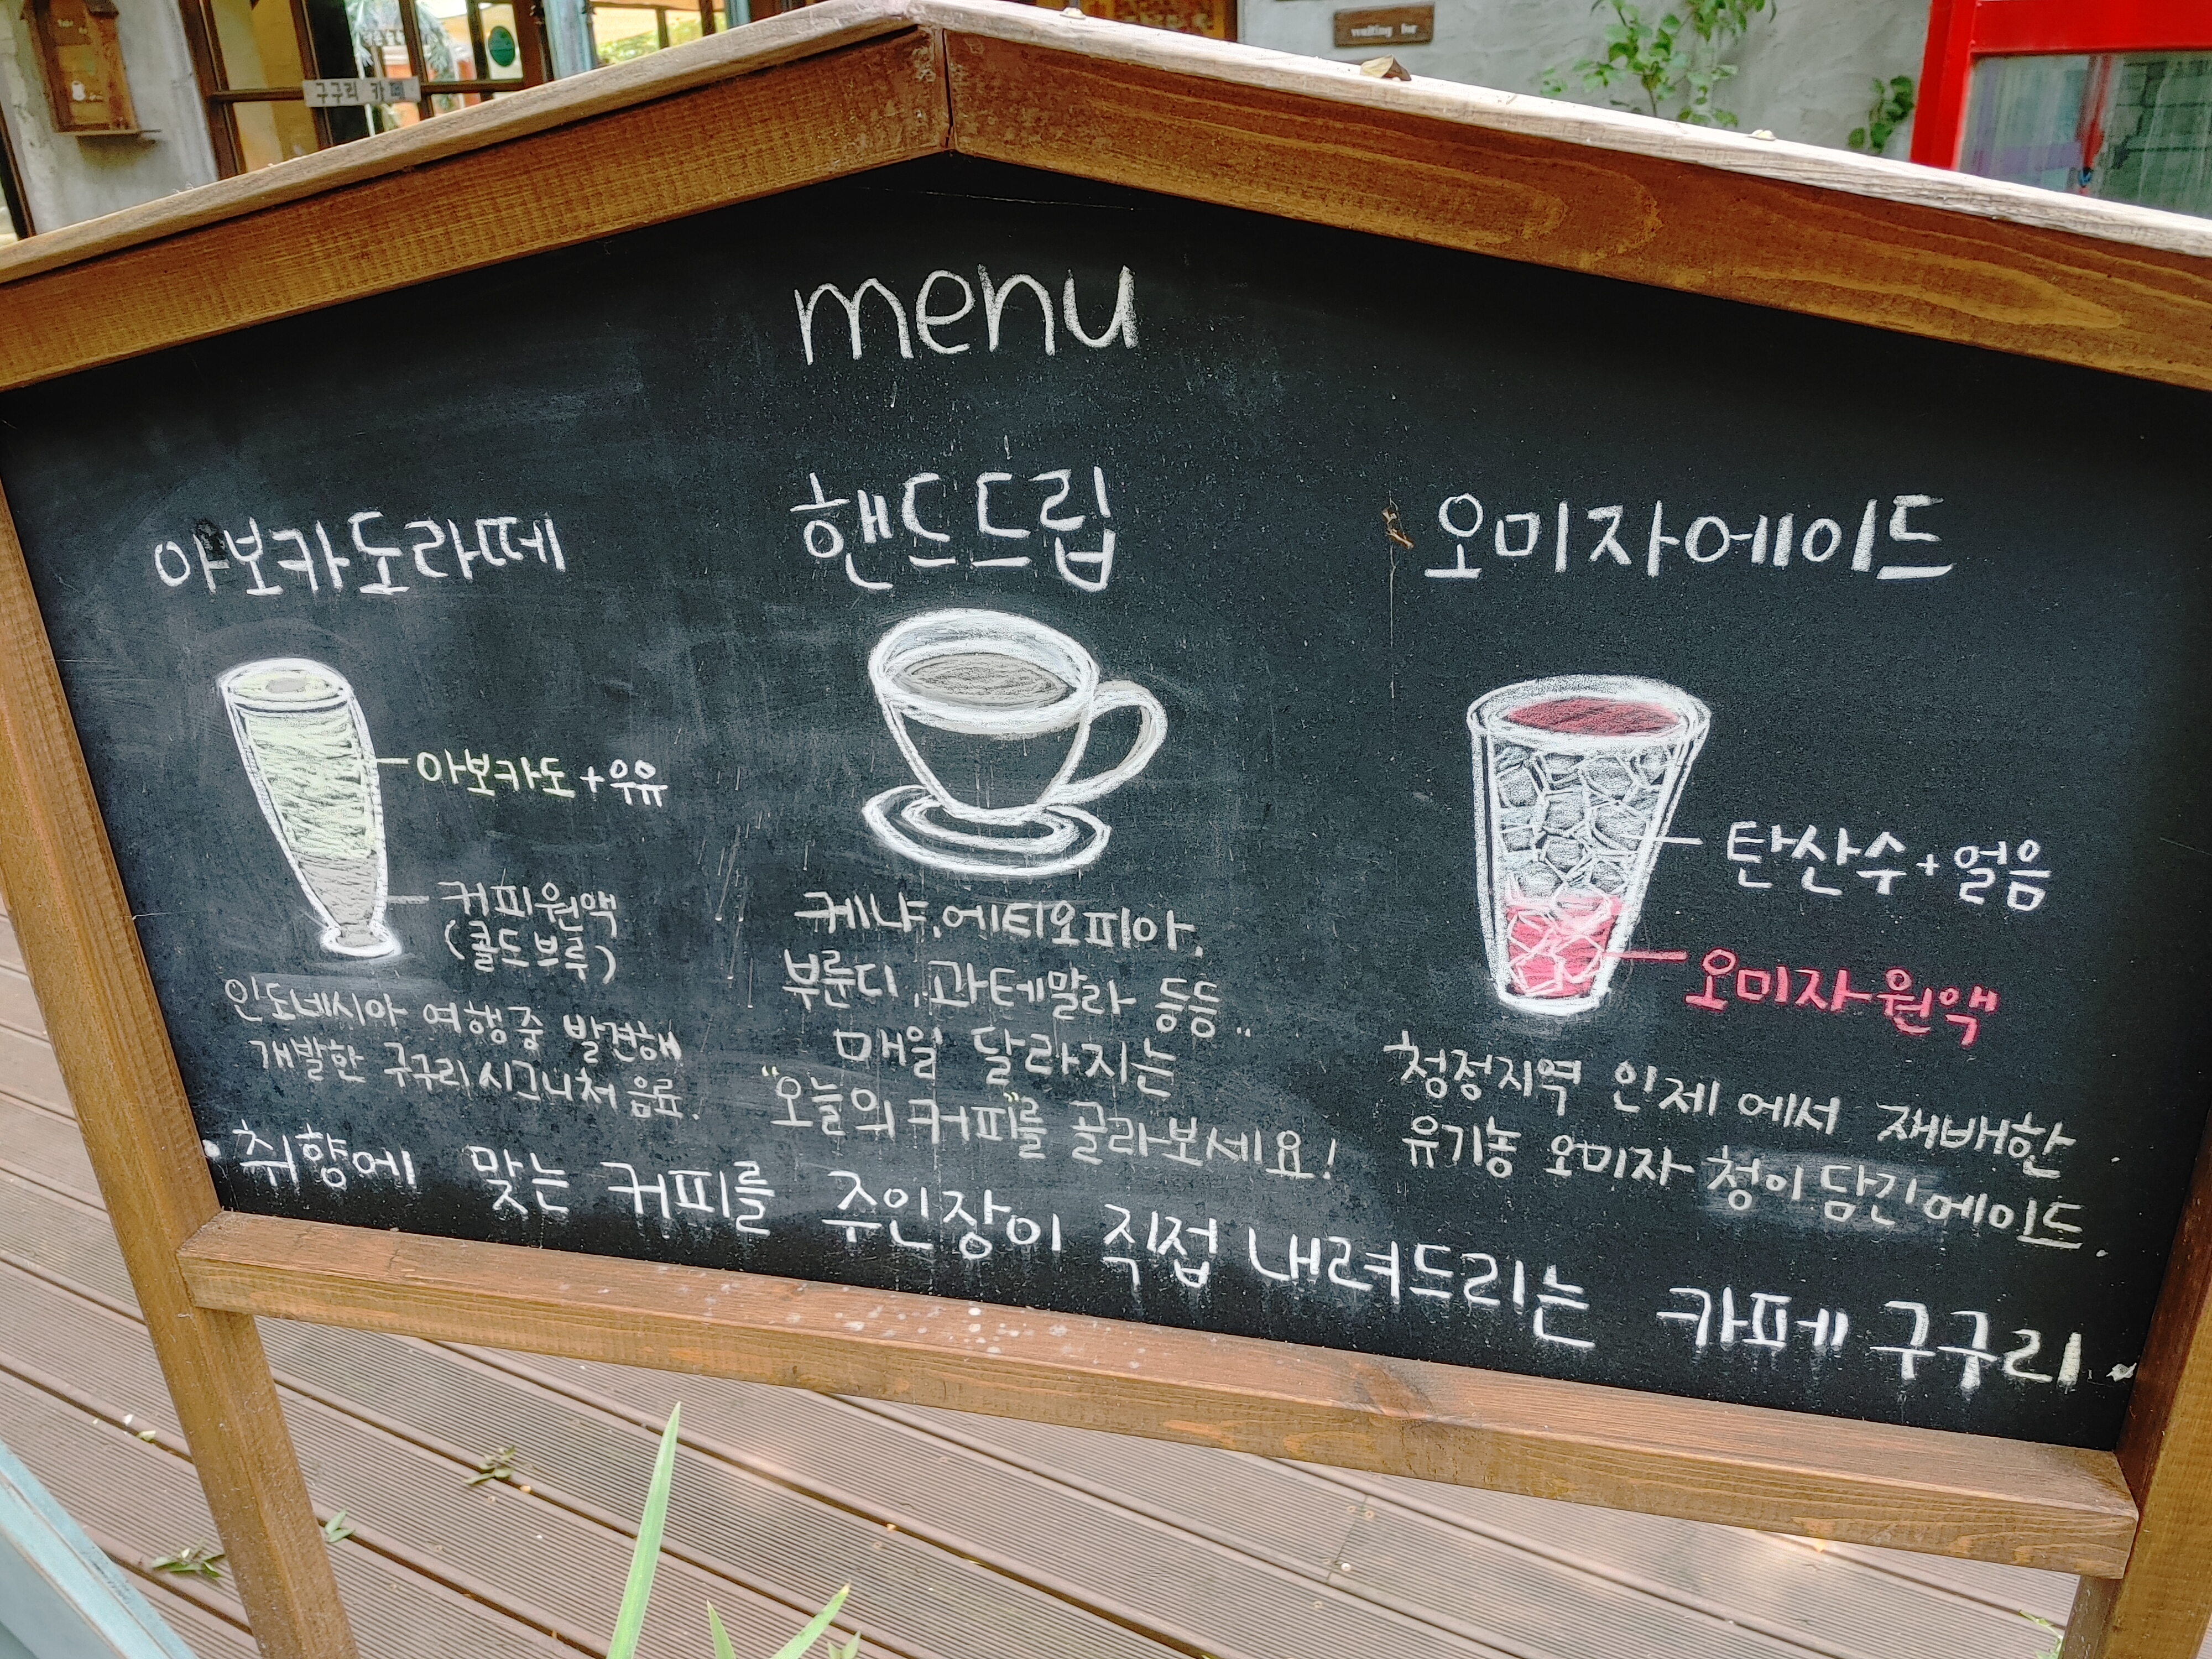 구구리 카페
waiting bar
menu
아보카도라떼
아보카도+우유
커피원액
(콜드브루)
인도네시아 여행중 발견해
개발한 구구리시그니처 음료.
핸드드립
케냐, 에티오피아,
부룬디, 과테말라 등등..
매일 달라지는
"오늘의 커피"를 골라보세요!
오미자에이드
탄산수+얼음
오미자원액
청정지역 인제에서 재배한
유기농 오미자 청이 담긴 에이드.
·취향에 맞는 커피를 주인장이 직접 내려드리는 카페 구구리·